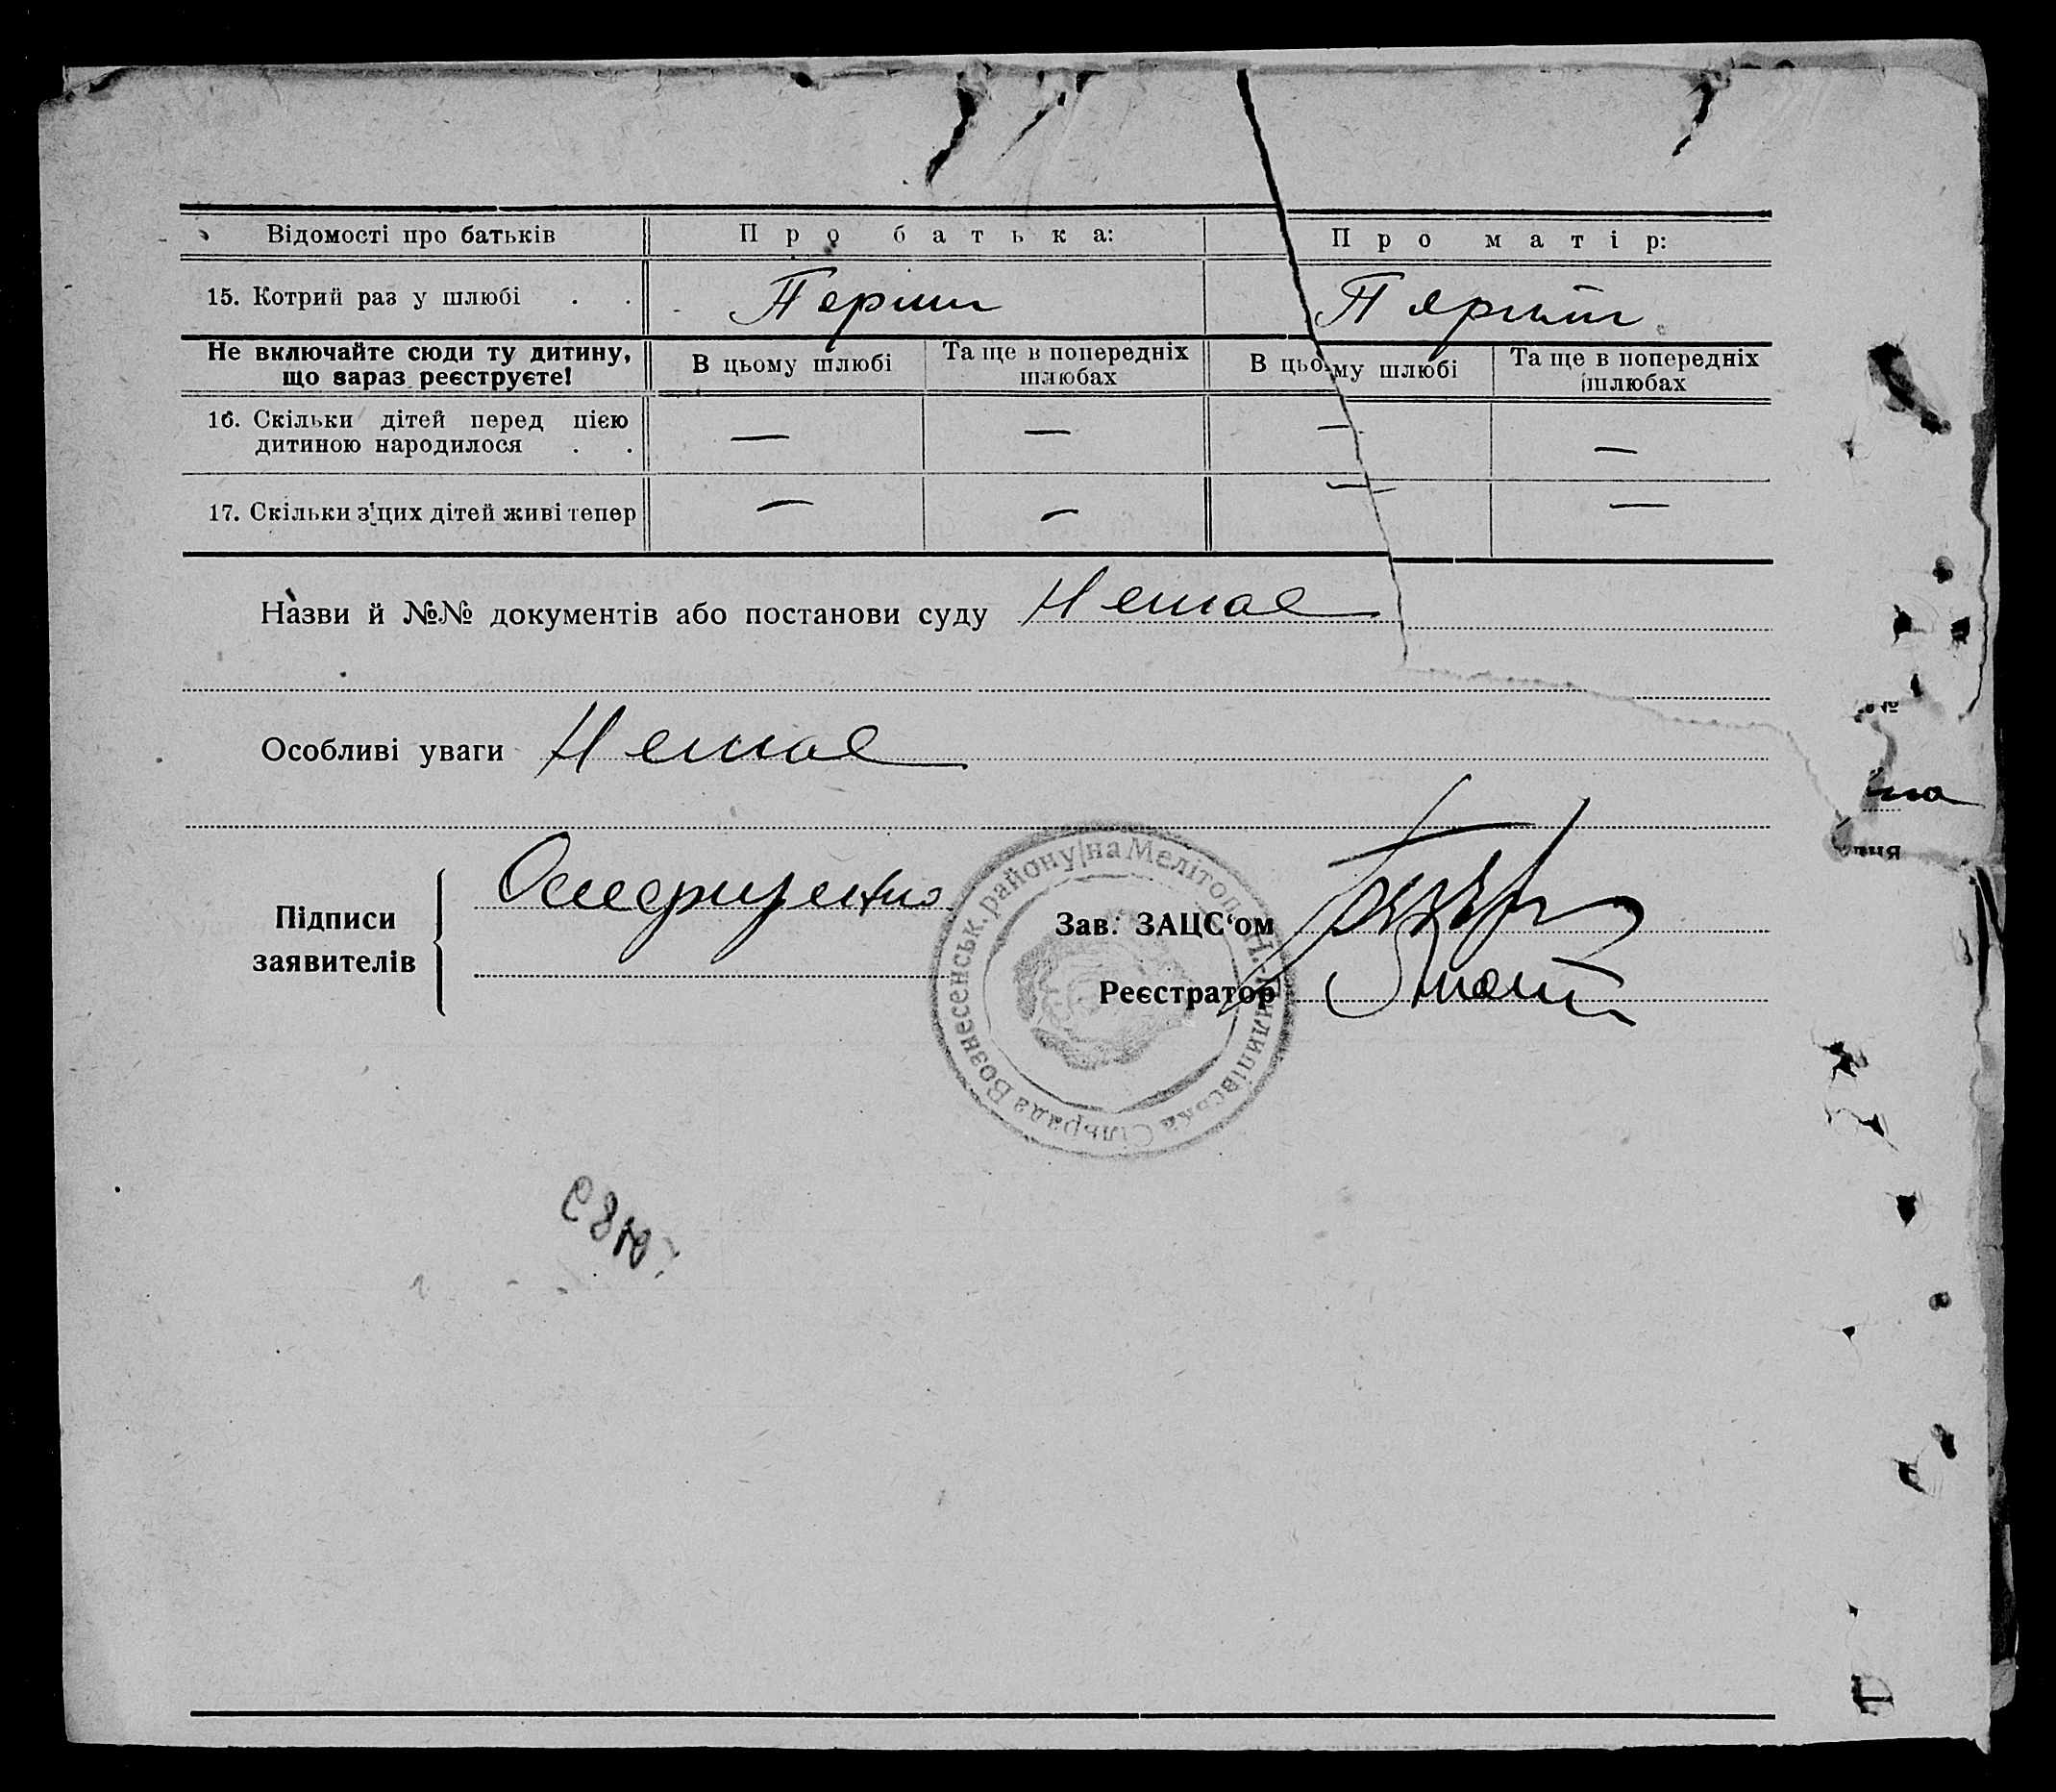 Відомості про батьків
Про батька:
Про матір:
15. Котрий раз у шлюбі . .
Перший
Перший
Не включайте сюди ту дитину, що зараз реєструєте!
В цьому шлюбі
Та ще в попередніх шлюбах
В цьому шлюбі
Та ще в попередніх шлюбах
16. Скільки дітей перед цією дитиною народилося . .
— — — —
17. Скільки з цих дітей живі тепер
— — — —
Назви й №№ документів або постанови суду Немає
Особливі уваги Немає
Підписи заявителів
Зав. ЗАЦС‘ом
Реєстратор
Сільрада Вознесенськ. району на Мелітоп.